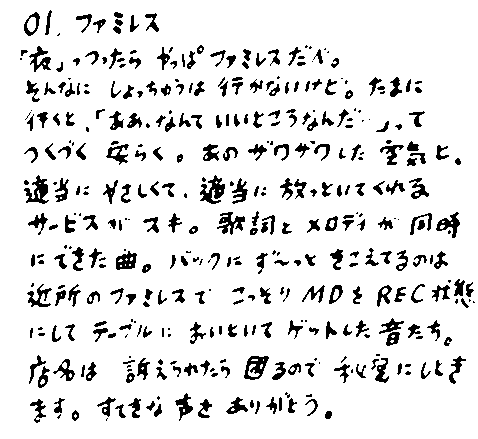 01. ファミレス
「夜」っつったら やっぱ ファミレスだべ。
そんなに しょっちゅうは 行かないけど。たまに
行くと、「ああ、なんて いいところなんだ…」って
つくづく 安らぐ。あの ザワザワした 空気と、
適当に やさしくて、適当に 放っといてくれる
サービスが スキ。歌詞と メロディが 同時
にできた曲。バックに ず〜っと きこえてるのは
近所の ファミレスで こっそり MDを REC状態
にして テーブルに おいといて ゲットした 音たち。
店名は 訴えられたら 困るので 秘密にしとき
ます。すてきな 声を ありがとう。